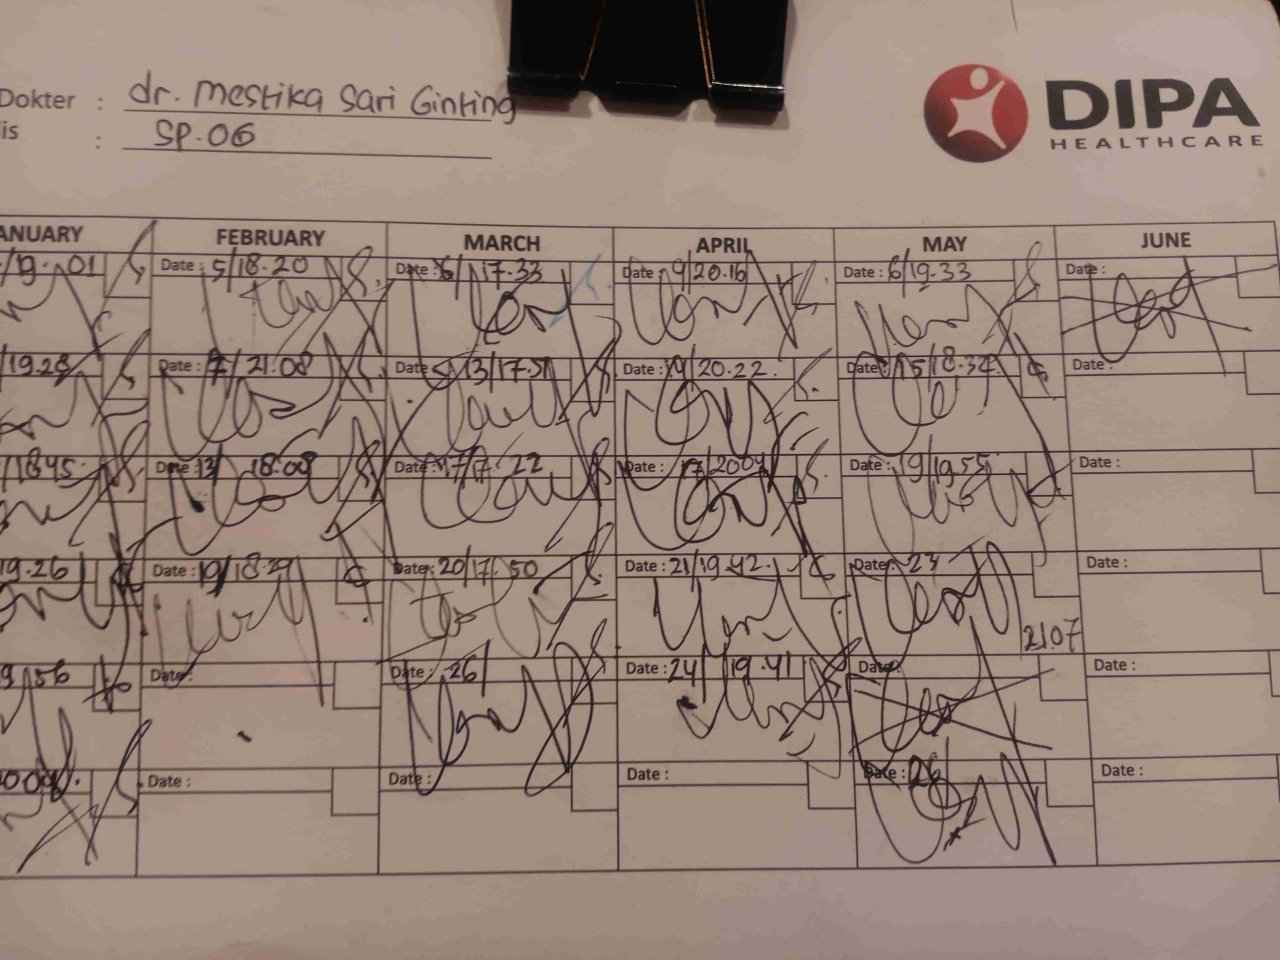 Dokter : dr. Mestika Sari Ginting
is : SP.OG
DIPA
HEALTHCARE
ANUARY FEBRUARY MARCH APRIL MAY JUNE
/19.01 Date : 5/18.20 Date : 6/17.33 Date : 9/20.16 Date : 6/19.33 Date :
/19.28 Date : 7/21.08 Date : 13/17.51 Date : 14/20.22. Date : 15/18.32 Date :
/18.45 Date : 13/18.09 Date : 17/17.22 Date : 17/20.04 Date : 19/19.55 Date :
19.26 Date : 19/18.29 Date : 20/17.50 Date : 21/19.42. Date : 23 Date :
21.07
9.56 Date : Date : 26/ Date : 24/19.41 Date : Date :
Date : Date : Date : Date : 26 Date :